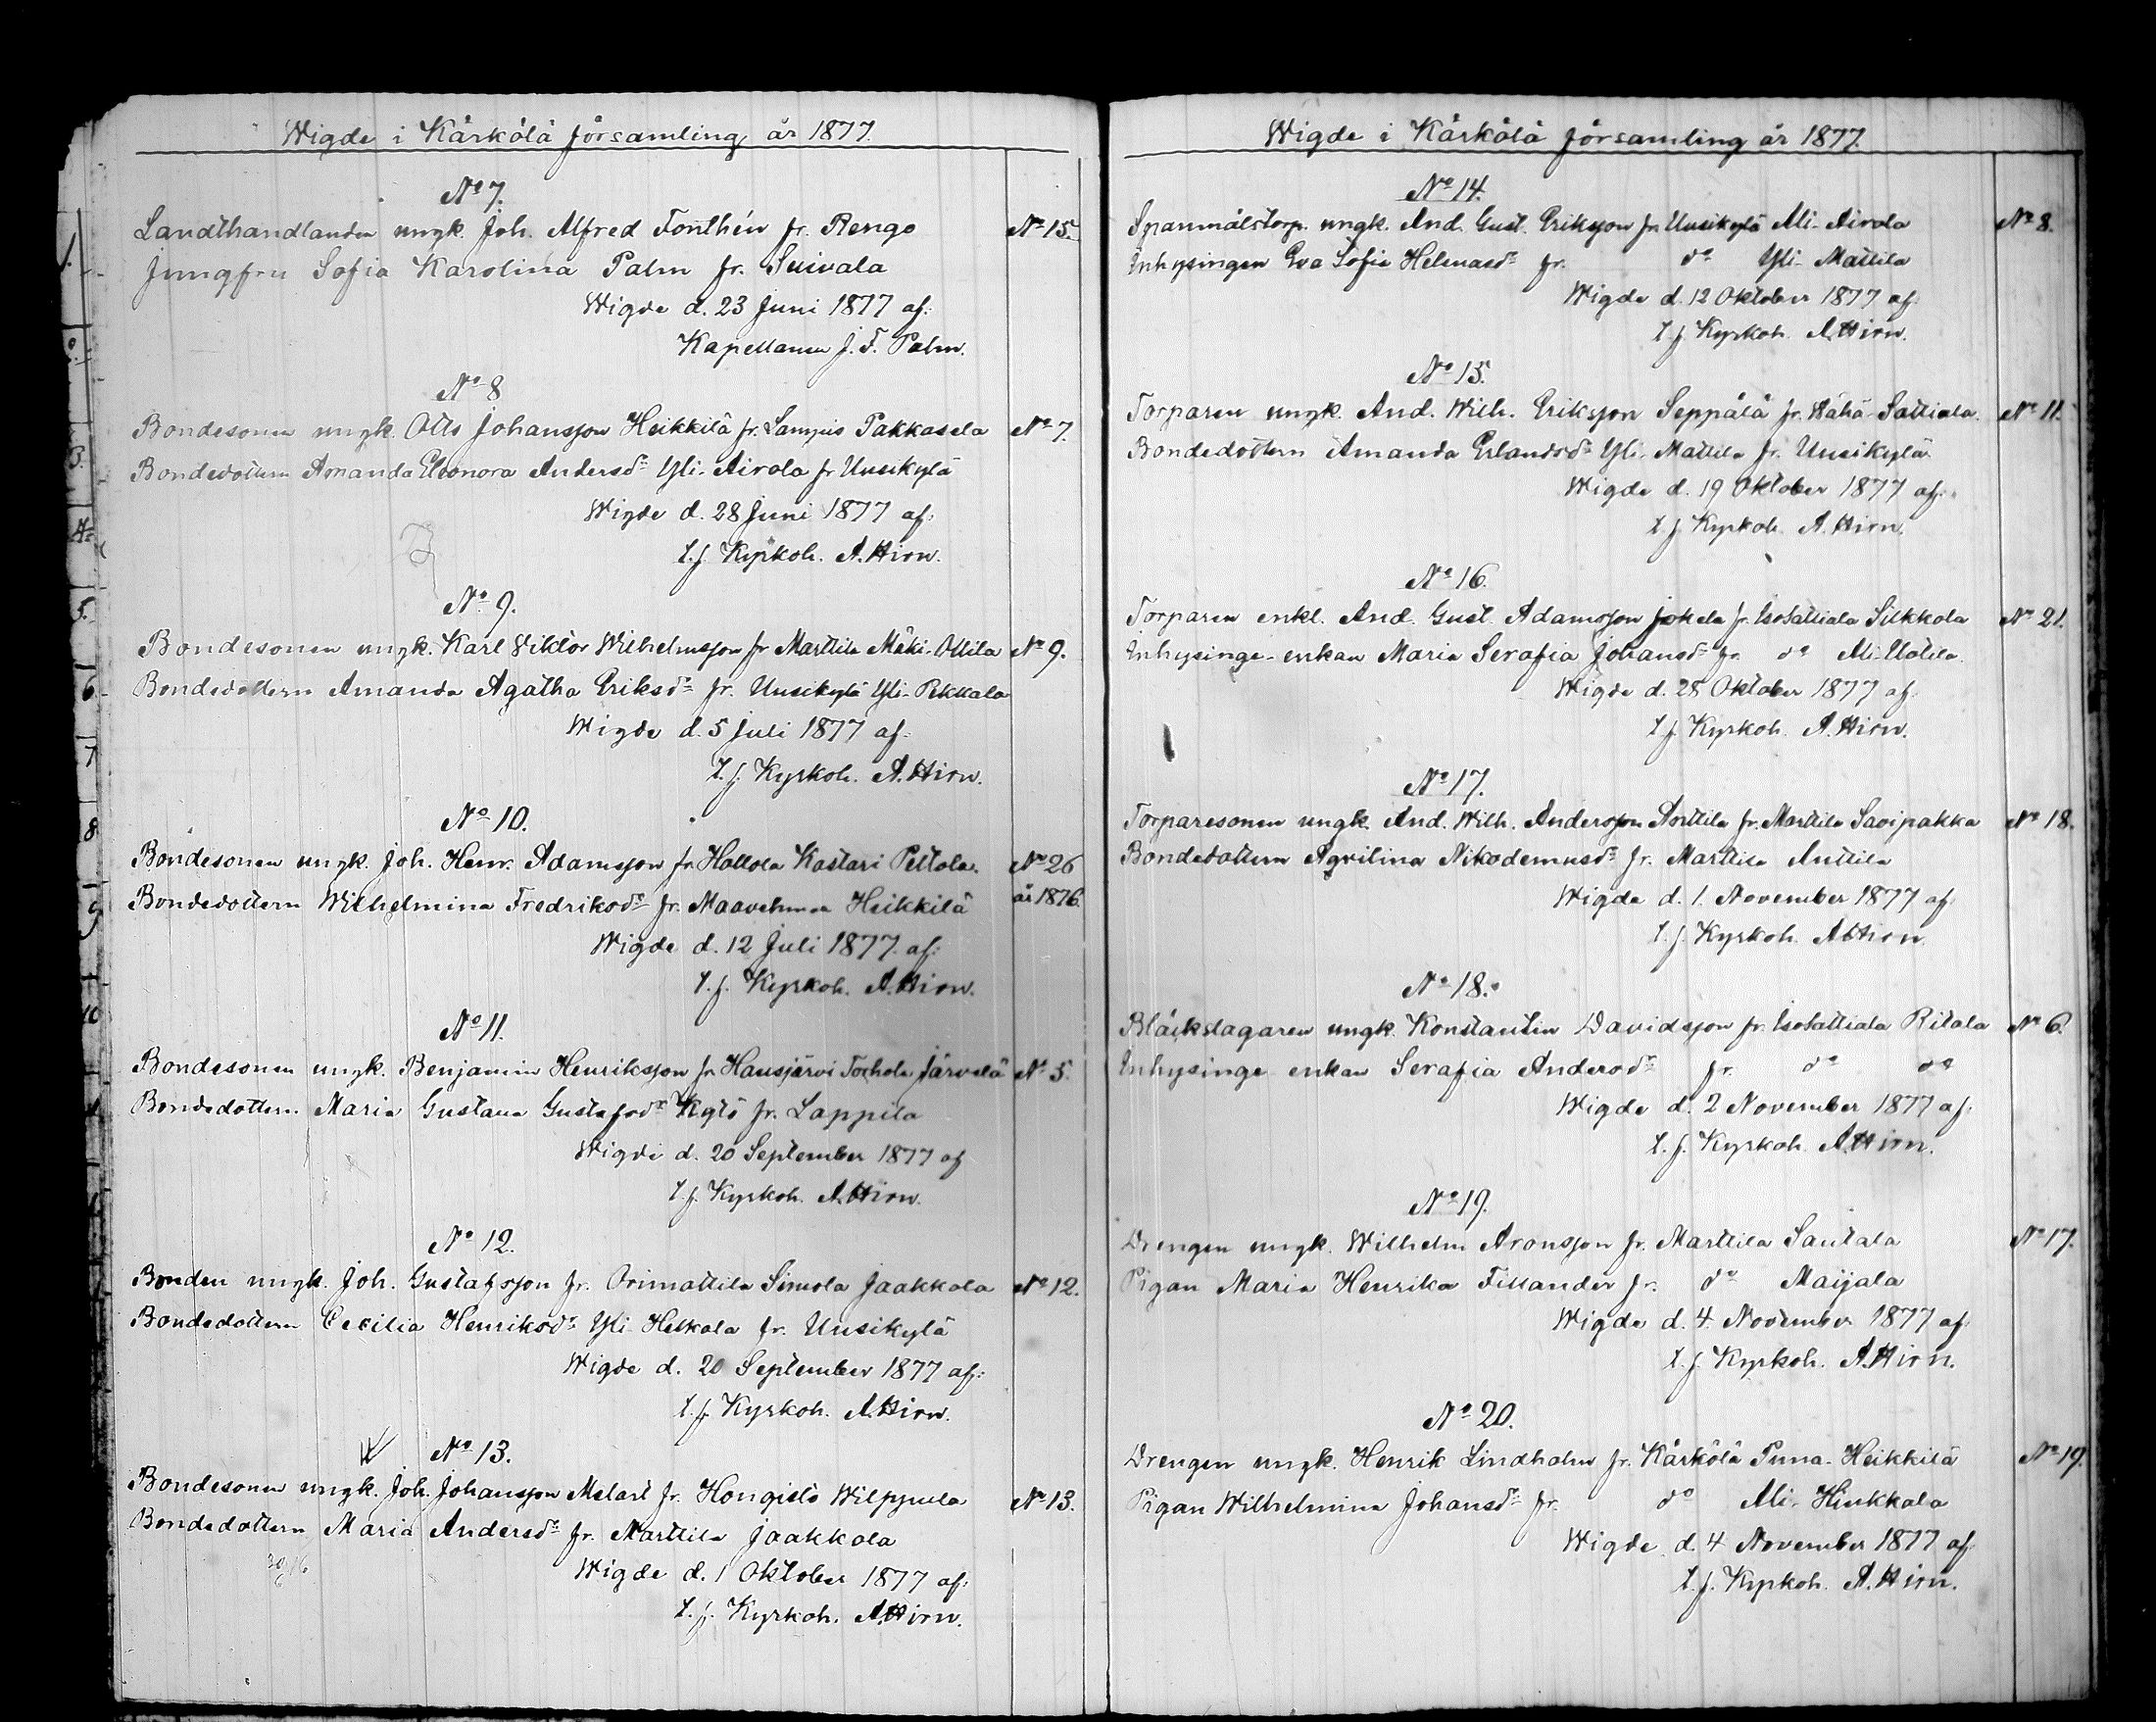 Wigde i Kärkölä församling år 1877.
No 7.
Landthandlanden ungk. Joh. Alfred Fonthén fr. Rengo No 15.
Jungfru Sofia Karolina Palm fr. Suivala
Wigde d. 23 Juni 1877 af:
Kapellanen J. F. Palm.
No 8
Bondesonen ungk. Otto Johansson Heikkilä fr. Lampis Pakkasela No 7.
Bondedottern Amanda Eleonora Andersdr Yli-Airola fr Uusikylä
Wigde d. 28 Juni 1877 af:
t.f. Kyrkoh. A. Hirn.
No 9.
Bondesonen ungk. Karl Viktor Wilhelmsson fr Marttila Mäki-Ollila No 9.
Bondedottern Amanda Agatha Eriksdr fr. Uusikylä Yli-Pekkala
Wigde d. 5 Juli 1877 af:
t.f. Kyrkoh. A. Hirn.
No 10.
Bondesonen ungk. Joh. Henr. Adamsson fr. Hollola Kastari Peltola. No 26
Bondedottern Wilhelmina Fredriksdr fr. Maavehmaa Heikkilä år 1876.
Wigde d. 12 Juli 1877. af:
t.f. Kyrkoh. A. Hirn.
No 11.
Bondesonen ungk. Benjamin Henriksson fr Hausjärvi Torhola Järvelä No 5.
Bondedottern Maria Gustava Gustafsdr Kytö fr. Lappila
Wigde d. 20 September 1877 af
t.f. Kyrkoh. A. Hirn.
No 12.
Bonden ungk. Joh. Gustafsson fr. Orimattila Simola Jaakkola No 12.
Bondedottern Cecilia Henriksdr Yli Heikkola fr. Uusikylä
Wigde d. 20 September 1877 af:
t.f. Kyrkoh. A. Hirn.
No 13.
Bondesonen ungk. Joh. Johansson Melart fr. Hongisto Wilppula No 13.
Bondedottern Maria Andersdr fr. Marttila Jaakkola
Wigde d. 1 Oktober 1877 af:
t.f. Kyrkoh. A. Hirn.
Wigde i Kärkölä församling år 1877.
No 14.
Spanmålstorp. ungk. And. Gust. Eriksson fr Uusikylä Ali-Airola No 8.
Inhysingen Eva Sofia Helenasdr fr. do Yli-Mattila
Wigde d. 12 Oktober 1877 af:
t.f. Kyrkoh. A. Hirn.
No 15.
Torparen ungk. And. Wilh. Eriksson Seppälä fr. Wähä-Sattiala. No 11.
Bondedottern Amanda Erlandsdr Yli-Mattila fr. Uusikylä
Wigde d. 19 Oktober 1877 af:
t.f. Kyrkoh. A. Hirn.
No 16.
Torparen enkl. And. Gust. Adamsson Jokela fr. IsoSattiala Silkkola No 21.
Inhysinge-enkan Maria Serafia Johansdr fr. do Ali-Uotila.
Wigde d. 28 Oktober 1877 af.
t.f. Kyrkoh. A. Hirn.
No 17.
Torparesonen ungk. And. Wilh. Andersson Anttila fr. Marttila Savipakka No 18.
Bondedottern Aqvilina Nikodemusdr fr. Marttila Anttila
Wigde d. 1. November 1877 af
t.f. Kyrkoh. A. Hirn
No 18.
Bläckslagaren ungk. Konstantin Davidsson fr. IsoSattiala Ritala No 6.
Inhysinge enkan Serafia Andersdr fr. do do
Wigde d. 2 November 1877 af:
t.f. Kyrkoh. A. Hirn.
No 19.
Drengen ungk. Wilhelm Aronsson fr. Marttila Santala No 17.
Pigan Maria Henrika Fillander fr. do Maijala
Wigde d. 4 November 1877 af:
t.f. Kyrkoh. A. Hirn.
No 20.
Drengen ungk. Henrik Lindholm fr. Kärkölä Puna-Heikkilä No 19.
Pigan Wilhelmina Johansdr fr. do Ali-Hinkkala
Wigde d. 4 November 1877 af
t.f. Kyrkoh. A. Hirn.